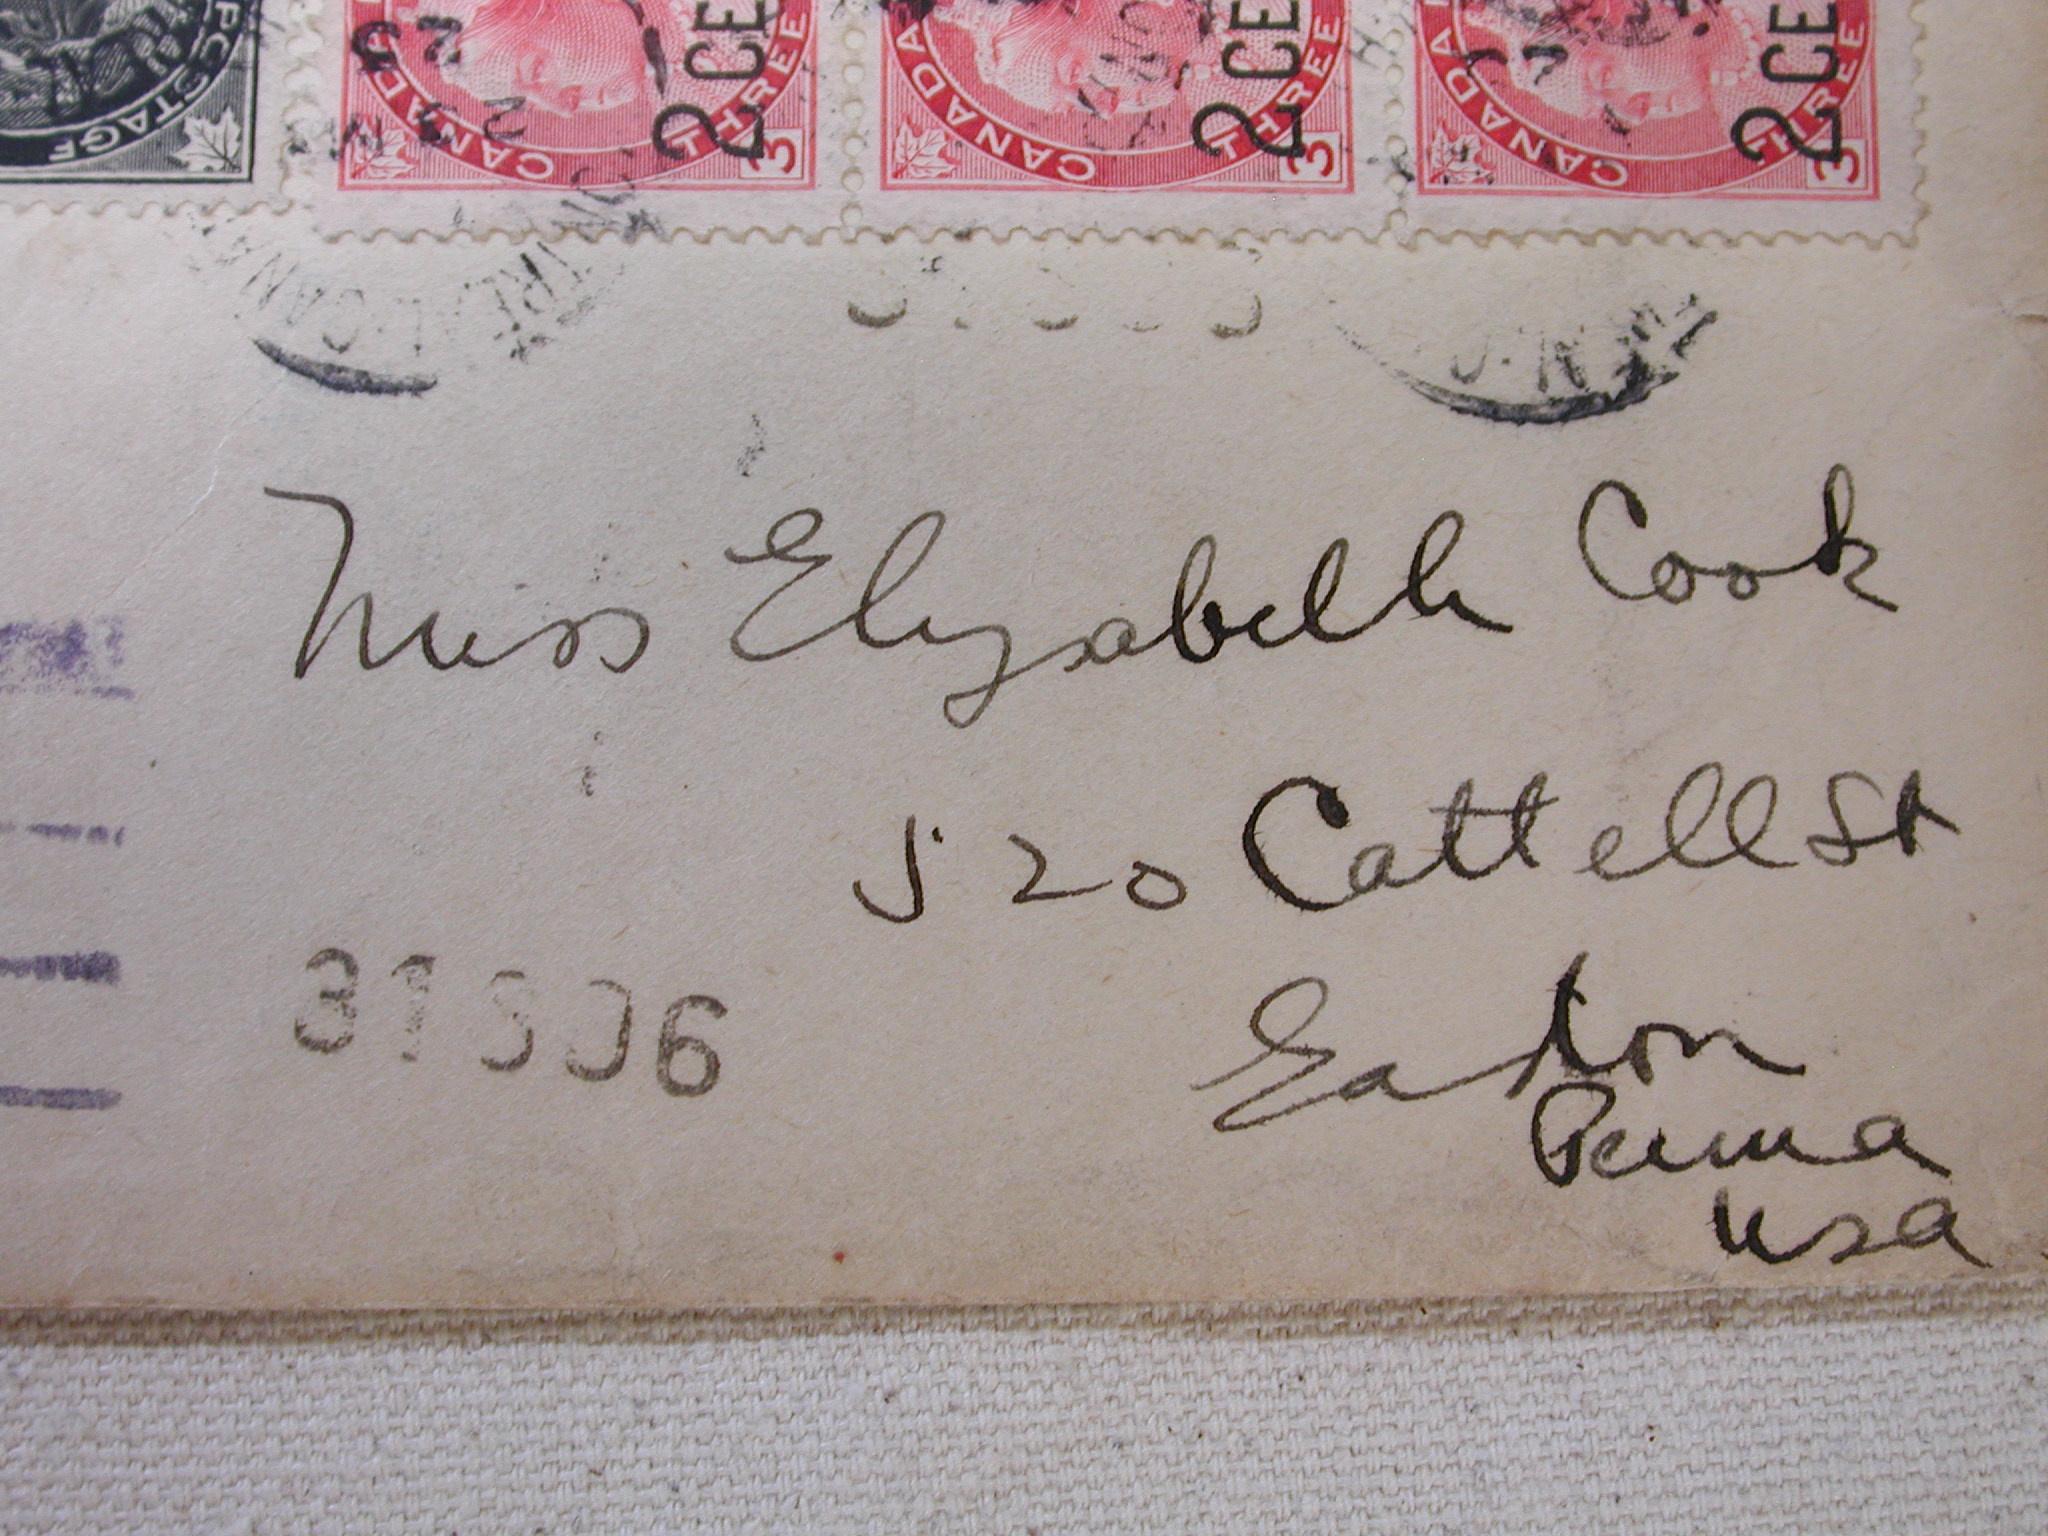 POSTAGE
CANADA 2 CE THREE 3
CANADA 2 CE THREE 3
CANADA 2 CE THREE 3
Miss Elizabeth Cook
520 Cattell St
Easton
Penna
USA
31506